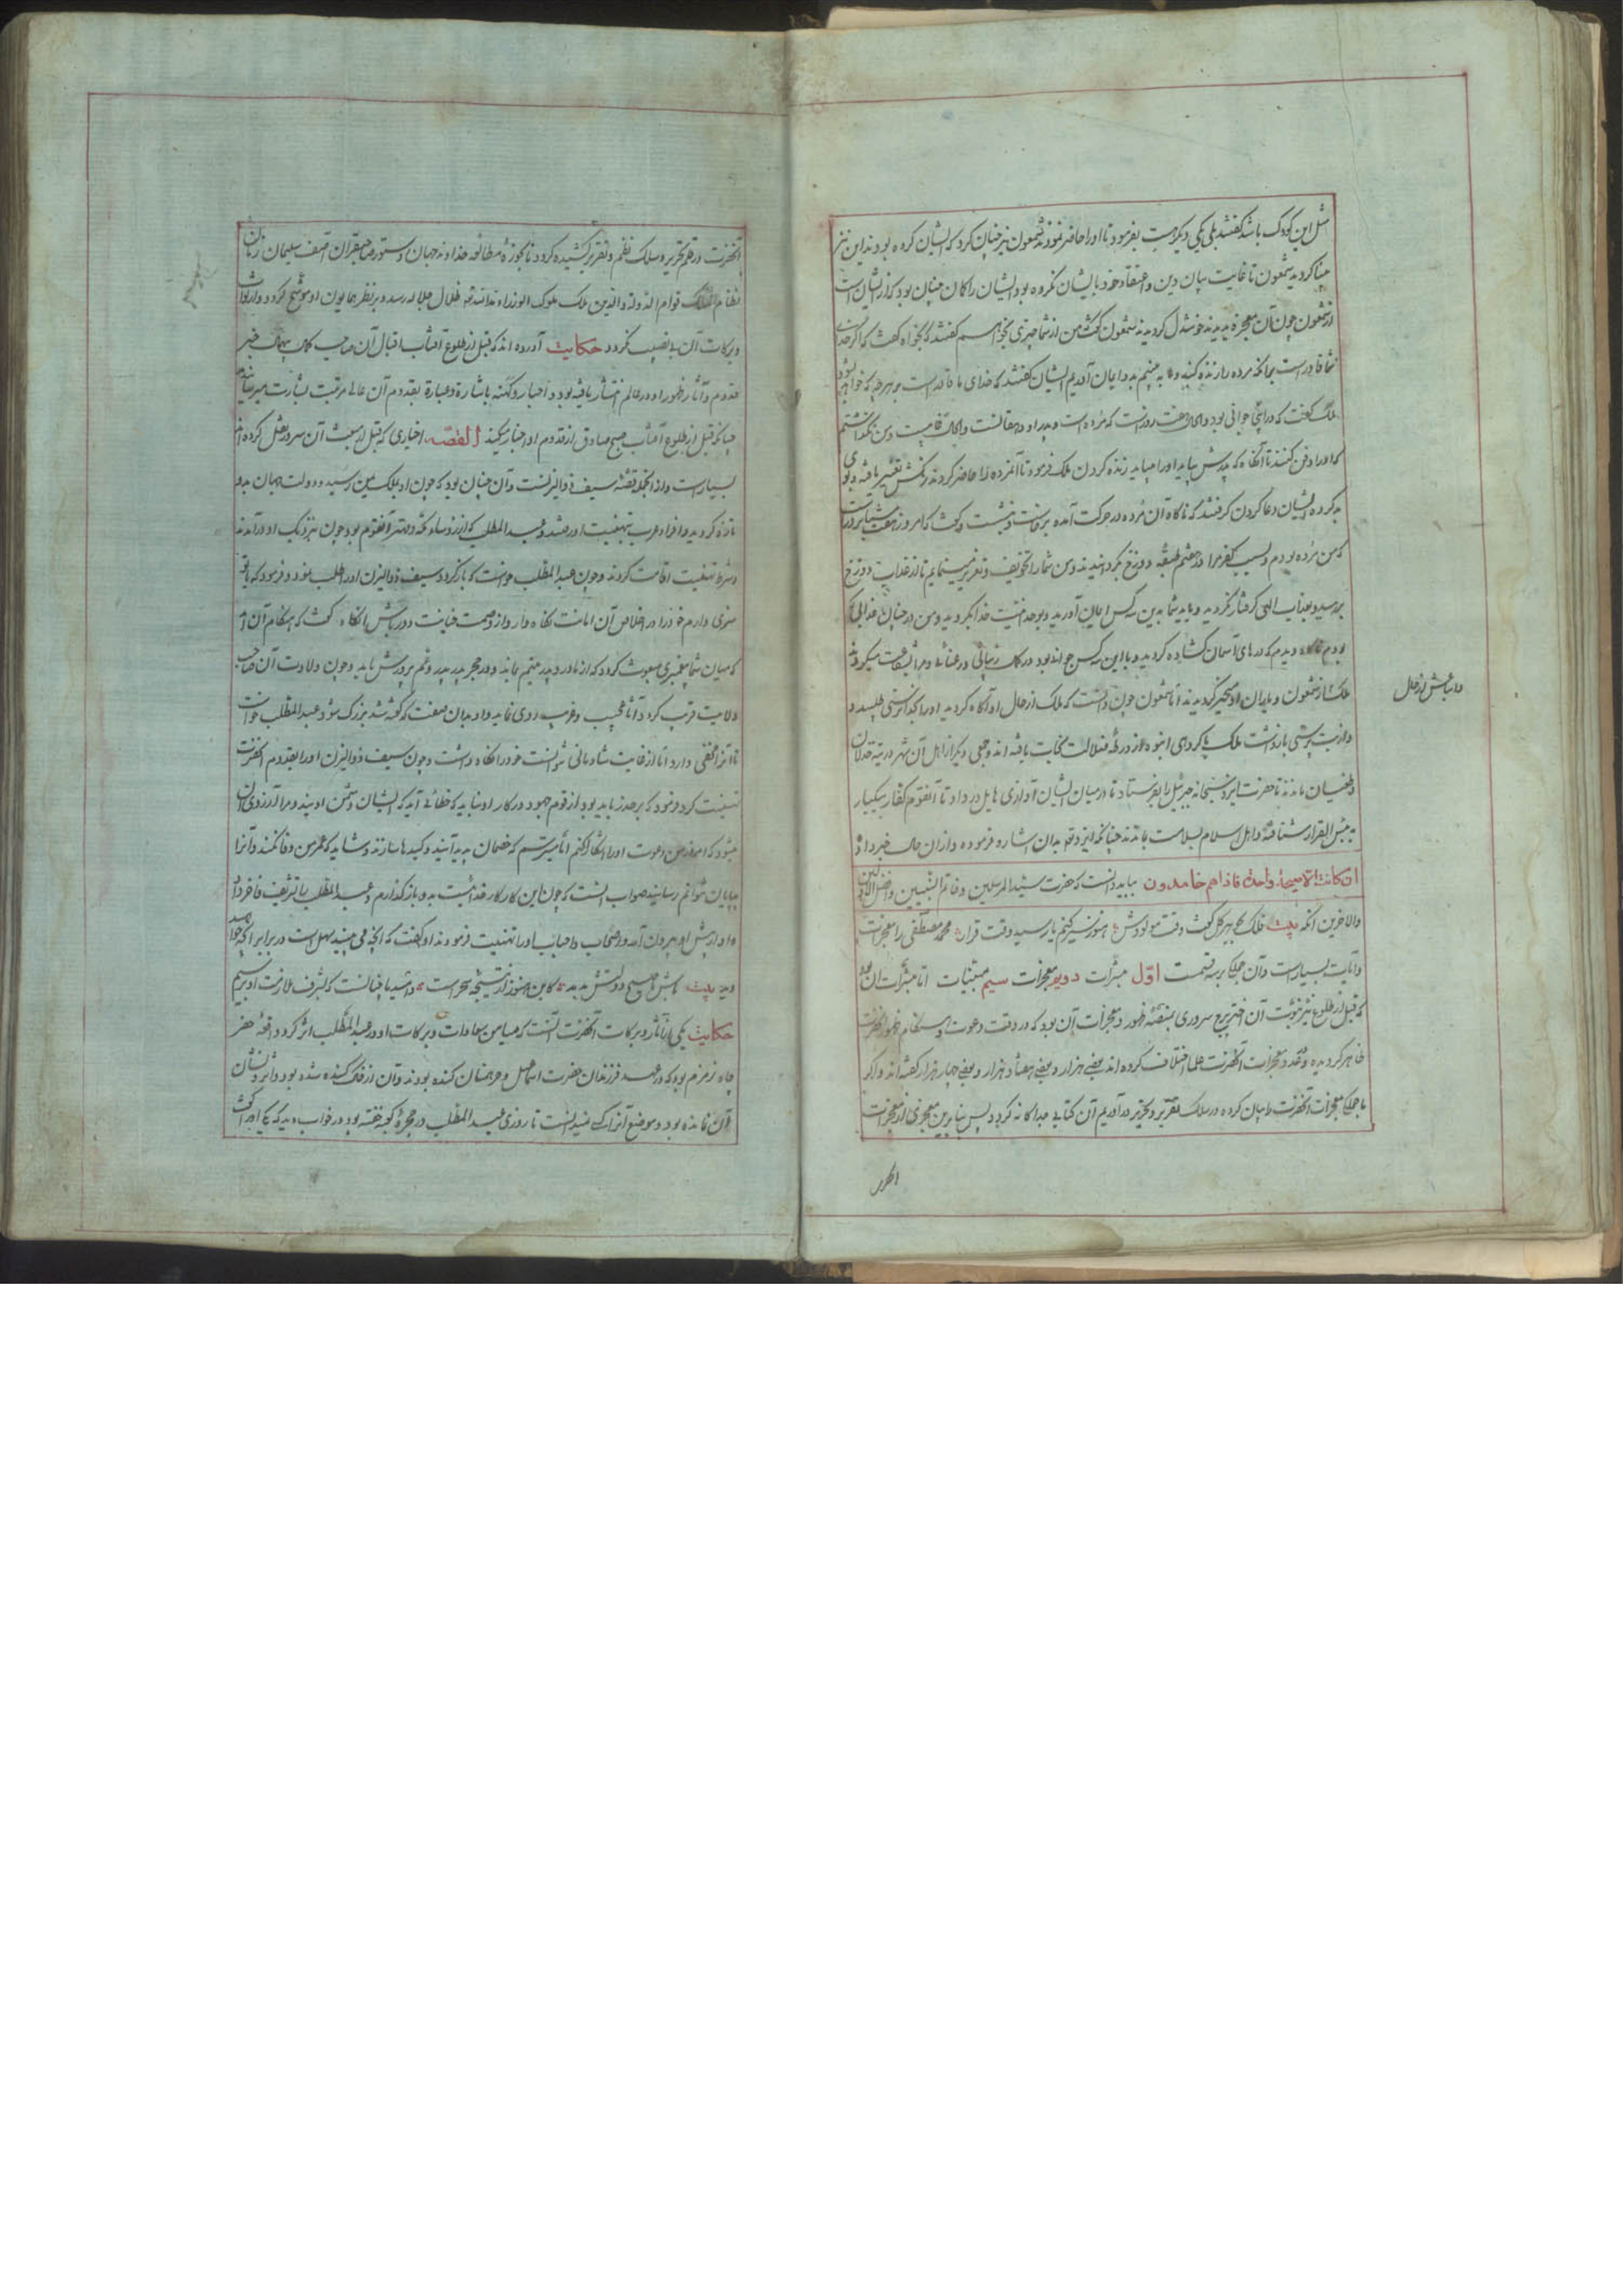 مثل این کودک باشد گفتند بلی یکی دیگر هست بفرمود تا او را حاضر نمودند شمعون نیز چنان کرد که ایشان کرده بودند این نیز
بینا گردید شمعون تا غایت بیان دین و اعتقاد خود با ایشان نکرده بود ایشان را گمان چنان بود که از ایشان است
از شمعون چون آن معجزه بدیدند خوشدل گردیدند شمعون گفت من از شما چیزی بخواهم گفتند بخواه گفت که اگر خدای
شما قادر است بر آنکه مرده را زنده کند ما به بینیم بدو ایمان آوریم ایشان گفتند که خدای ما قادر است بر هرچه که خواهد
ملک گفت که در اینجا جوانی بود و هفت روز است که مرده است و پدر او دهقانست و غایب است و من نگذاشتم
که او را دفن کنند تا آنگاه که پدرش بیاید او را بیاید زنده کردن ملک فرمود تا آنمرده را حاضر کردند رنگش تغییر یافته و بوی
بد کرده ایشان دعا کردن گرفتند که ناگاه آن مرده در حرکت آمده برخاست و بنشست و گفت که امروز هفت
که من مرده بودم و بسبب کفر مرا در هفتم طبقه دوزخ گردانیدند و من شما را تخویف و تعزیر مینمایم تا از عذاب دوزخ
بترسید و بعذاب الهی گرفتار نگردید و باید شما بدین سه کس ایمان آورید و بوحدانیت خدا بگروید و من در چنان عذابی
بودم دیدم که درهای آسمان گشاده گردید و با این سه کس جوانی بود در کمال زیبائی و رعنائی و مرا شفاعت میکردند
ملک از شمعون و یاران او متحیر گردیدند اما شمعون چون دانست که ملک از حال او آگاه گردید او را بخداپرستی طلبید و
و از بت پرستی بازداشت ملک با گروهی انبوه از ورطهٔ ضلالت نجات یافته اند و جمعی دیگر از اهل آن شهر در تیه خذلان
و طغیان ماندند تا حضرت ایزد سبحانه جبرئیل را بفرستاد تا در میان ایشان آوازی هایل در داد تا آنقوم کفار بیکبار
به بئس القرار شتافتند و اهل اسلام بسلامت بماندند چنانکه ایزد تعه بدان اشاره فرموده و از آن حال خبر داد
ان کانت الا صیحة واحدة فاذا هم خامدون بباید دانست که حضرت سید المرسلین و خاتم النبیین و افضل الاولین
والاخرین آنکه بیت فلک گفت وقت مولودش هنوز یا رسید وقت قران محمد مصطفی را معجزات
و آیات بسیار است و آن جمله بر سه قسمست اول مبشرات دویم معجزات سیم مبینات اما مبشرات آن بود
که قبل از طلوع نیر نبوت آن اختر برج سروری بمنصهٔ ظهور و معجزات آن بود که در وقت دعوت و هنگام ظهور آنحضرت
ظاهر گردیده و عدد معجزات آنحضرت علما اختلاف کرده اند بعضی هزار و بعضی هفتاد هزار و بعضی چهار هزار گفته اند و اگر
ما جمله معجزات آنحضرت را بیان کرده در سلک تقریر و تحریر در آوریم آن کتابی جداگانه گردد پس بنا برین معجزی از معجزات
و اتباعش از حال
آنحضرت در قلم تحریر و سلک نظم و تقریر کشیده گردد تا بحوزهٔ مطالعه خداوند جهان دستور صاحبقران آصف سلیمان زمان
نظام الملک قوام الدوله والدین ملک ملوک الوزراء ظلال جلاله رسد و بنظر همایون او موشح گردد و از ثواب
و برکات آن بی نصیب نگردد حکایت آورده اند که قبل از طلوع آفتاب اقبال آن صاحب کمال خبر
قدوم و آثار ظهور او در عالم انتشار یافته بود و احبار و کهنه باشاره و عبارة بقدوم آن عالی مرتبت بشارت میرسانیدند
چنانکه قبل از طلوع آفتاب صبح صادق از قدوم او اخبار میکند القصه اخباری که قبل از بعثت آن سرور نقل کرده اند
بسیار است و از آنجمله قصهٔ سیف ذوالیزنست و آن چنان بود که چون او بملک یمن رسید و دولت جهان بدو
تازه گردید و افراد عرب بتهنیت او رفتند و عبدالمطلب که از رؤساء مکه و مهتر آنقوم بود چون نزدیک او درآمدند
و شرط تهنیت اقامت کردند و چون عبدالمطلب خواست که بازگردد سیف ذوالیزن او را طلب نمود و فرمود که با تو
سری دارم خود را در اخلاص آن امانت نگاه دار و از وصمت خیانت دور باش آنگاه گفت که هنگام آن آمد
که میان شما پیغمبری مبعوث گردد که از مادر و پدر یتیم بماند و در حجر پدر پدر و عم پرورش یابد و چون ولادت آن صاحب
ولایت قریب گردد آثار عجیب و غریب روی نماید و او بدان صفت که گفته شد بزرگ شود عبدالمطلب خواست
تا آنرا مخفی دارد اما از غایت شادمانی نتوانست خود را نگاه داشت و چون سیف ذوالیزن او را بقدوم آنحضرت
تهنیت کرد و نمود که بر حذر باید بود از قوم جهود در کار او نباید که خطائی آید که ایشان دشمن اویند و مرا آرزوی آن
میشود که امروز من دعوت او را آشکار کنم اما میترسم که خصمان پدید آیند و کیدها سازند و شاید که عمر من وفا نکند و آنرا
بپایان نتوانم رسانید صواب آنست که چون این کار کار خدائیست بدو باز گذارم و عبدالمطلب را تشریف فاخر داد
و او از پیش او بیرون آمد و اصحاب و احباب او را تهنیت فرمودند او گفت که آنچه می بیند سهل است در برابر آنچه خواهید
دید بیت باش تا صبح دولتش بدمد کاین هنوز از نتیجه سحر است
حکایت یکی از آثار و برکات آنحضرت آنست که میامن سعادات و برکات او در عبدالمطلب اثر کرد واقعهٔ حفر
چاه زمزم بود که در عهد فرزندان حضرت اسماعیل و جرهمیان کنده بودند و آن از خاک کنده شده بود و اثر و نشان
آن نمانده بود و موضع آنرا کسی نمیدانست تا روزی عبدالمطلب در حجرهٔ کعبه خفته بود در خواب دید که یکی او را گفت